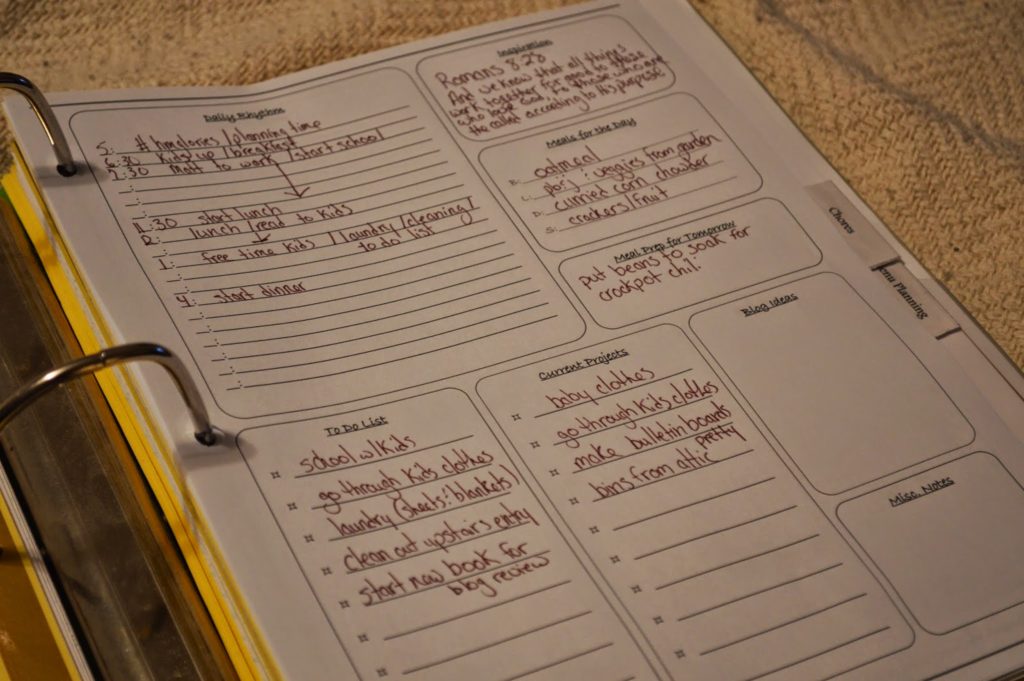 Daily Rhythm
5: # hmglories / planning time
6:30 Kids up / breakfast
7:30 Matt to work / start school
11:30 start lunch
12: lunch / read to kids
1: free time kids / laundry / cleaning /
to do list
4: start dinner
Inspiration
Romans 8:28
And we know that all things
work together for good to those
who love God, to those who are
the called according to His purpose!
Meals for the Day
B: oatmeal
L: pb+j + veggies from garden
D: curried corn chowder
S: crackers/fruit
Meal Prep for Tomorrow
put beans to soak for
crockpot chili
Chores
Menu Planning
Blog Ideas
To Do List
school w/ kids
go through kids clothes
laundry (sheets + blankets)
clean out upstairs entry
start new book for
blog review
Current Projects
baby clothes
go through kids clothes
make bulletin boards
pretty
bins from attic
Misc. Notes